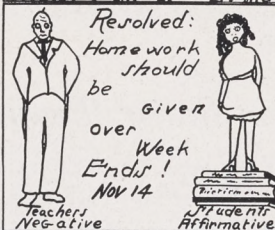 Resolved:
Homework
should
be
Given
over
Week
Ends!
Nov 14
Teachers
Negative
Students
Affirmative